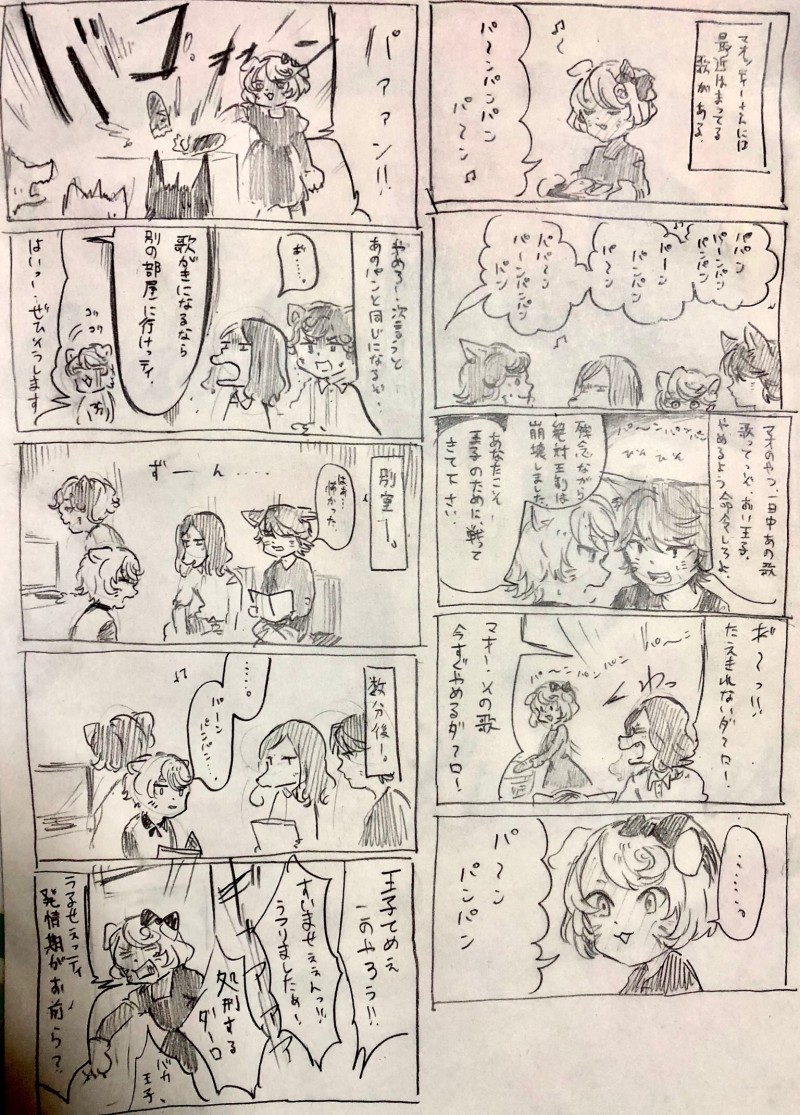 マオッティーさんには
最近はまってる
歌がある。
パ〜ンパンパン
パ〜ン♪
パパン
パ〜ンパン
パンパン
パ〜ン
パンパン
パ〜ン
パパ〜ン
パ〜ンパンパン
パン
マオのやつ、一日中あの歌
歌ってっぞ、おい王子、
やめるよう命令しろよ。
パ〜ンパンパン
残念ながら
絶対王制は
崩壊しました
あなたこそ!
王子のために、戦って
きて下さい。
ギ〜ッ!!
たえきれないダーロー!
パ〜ン
パ〜ンパンパン
くわっ
マオー!その歌
今すぐやめるダーロ!
……。
パ〜ン
パンパン
パァァン!!
バコ
やめろー、次言うと
あのパンと同じになるぞ!
ギ…。
歌がきになるなら
別の部屋に行けっティ
コワ
コワ
はいっ…ぜひそうします
別室ー。
はぁ…
怖かった。
ずーん…
数分後ー。
……。
パーン
パンパン…
王子てめえ
このやろう!!
すいませぇぇんっ!!
うつりましたぁー!
ギャアアアア
処刑する
ダーロ
うるせぇっティ
発情期がお前ら?
バカ
王子、